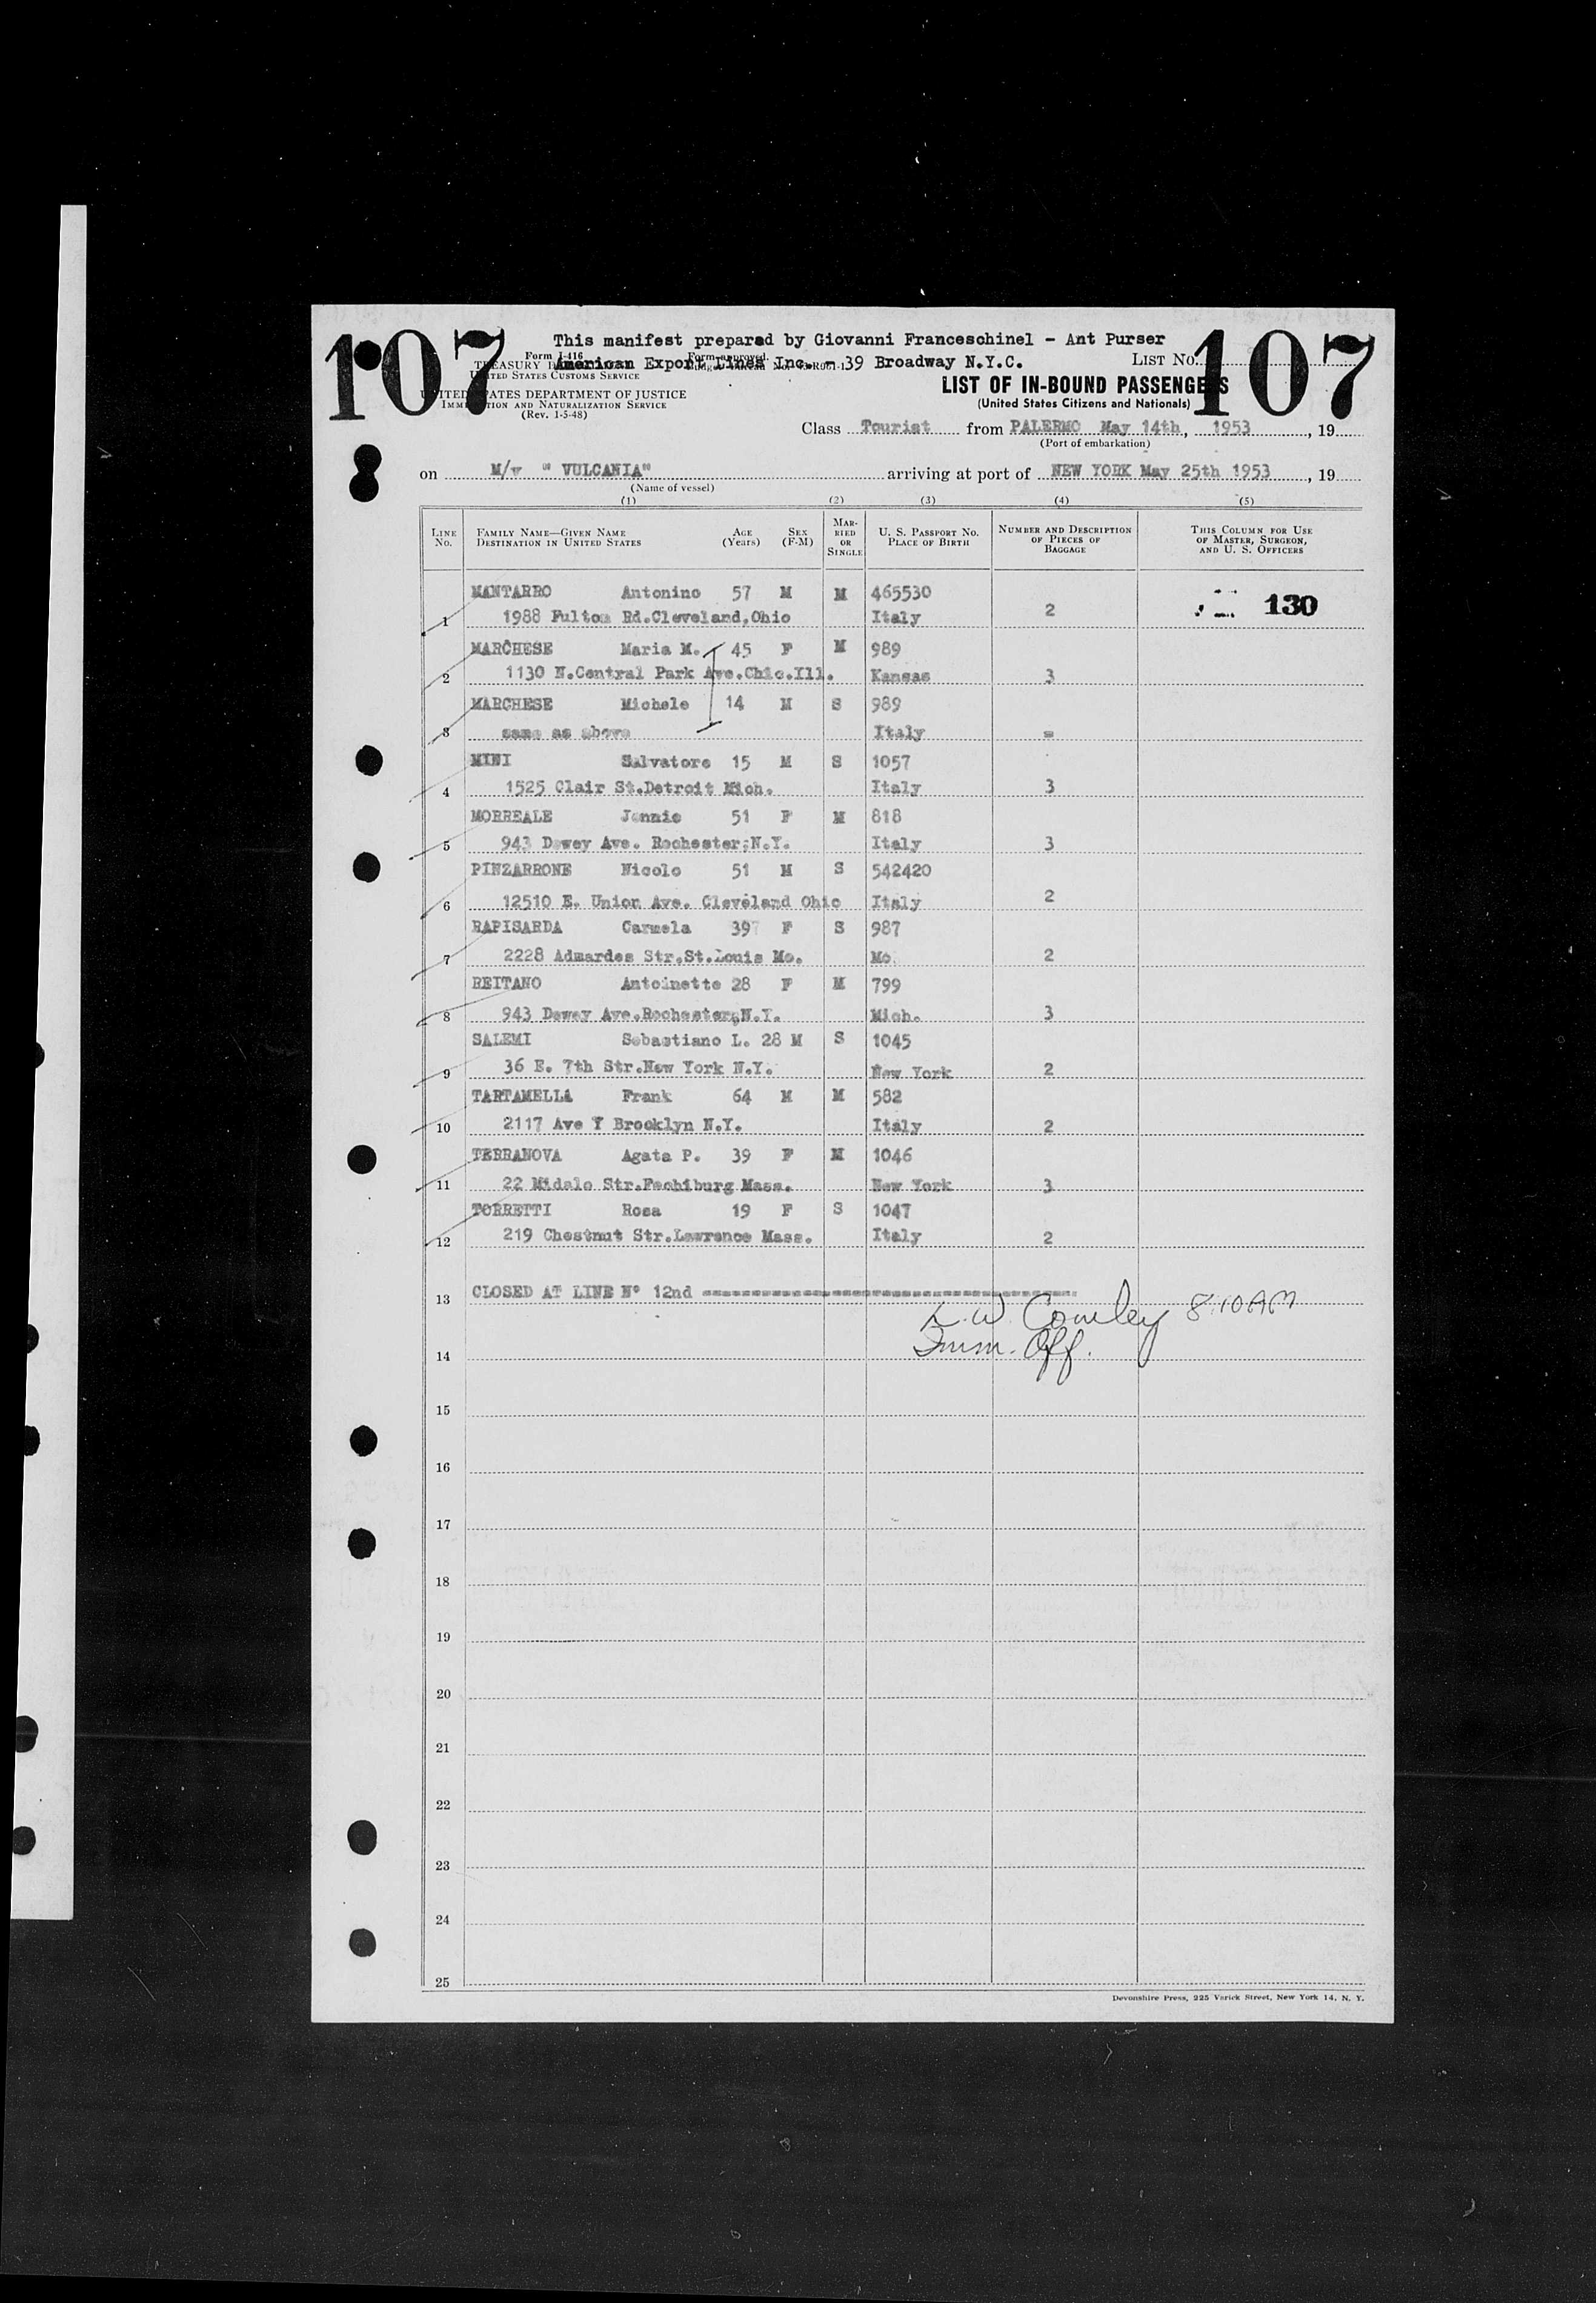 107
107
This manifest prepared by Giovanni Franceschinel - Ant Purser
Form I-416
Form approved.
American Export Lines Inc. - 39 Broadway N.Y.C.
LIST NO.
TREASURY
UNITED STATES CUSTOMS SERVICE
LIST OF IN-BOUND PASSENGERS
UNITED STATES DEPARTMENT OF JUSTICE
(United States Citizens and Nationals)
IMMIGRATION AND NATURALIZATION SERVICE
(Rev. 1-5-48)
Class Tourist from PALERMO May 14th, 1953, 19
(Port of embarkation)
on M/v " VULCANIA" arriving at port of NEW YORK May 25th 1953, 19
(Name of vessel)
(1) (2) (3) (4) (5)
LINE NO. FAMILY NAME—GIVEN NAME DESTINATION IN UNITED STATES AGE (Years) SEX (F-M) MARRIED OR SINGLE U. S. PASSPORT NO. PLACE OF BIRTH NUMBER AND DESCRIPTION OF PIECES OF BAGGAGE THIS COLUMN FOR USE OF MASTER, SURGEON, AND U. S. OFFICERS
MANTARRO Antonino 57 M M 465530 130
1 1988 Fulton Rd.Cleveland,Ohio Italy 2
MARCHESE Maria M. 45 F M 989
2 1130 N.Central Park Ave.Chic.Ill. Kansas 3
MARCHESE Michele 14 M S 989
3 same as above Italy =
MINI Salvatore 15 M S 1057
4 1525 Clair St.Detroit Mich. Italy 3
MORREALE Jennie 51 F M 818
5 943 Dewey Ave. Rochester,N.Y. Italy 3
PINZARRONE Nicolo 51 M S 542420
6 12510 E. Union Ave. Cleveland Ohio Italy 2
RAPISARDA Carmela 39 F S 987
7 2228 Admardes Str.St.Louis Mo. Mo. 2
REITANO Antoinette 28 F M 799
8 943 Dewey Ave.Rochester,N.Y. Mich. 3
SALEMI Sebastiano L. 28 M S 1045
9 36 E. 7th Str.New York N.Y. New York 2
TARTAMELLA Frank 64 M M 582
10 2117 Ave Y Brooklyn N.Y. Italy 2
TERRANOVA Agata P. 39 F M 1046
11 22 Midalo Str.Fechiburg Mass. New York 3
TORRETTI Rosa 19 F S 1047
12 219 Chestnut Str.Lawrence Mass. Italy 2
13 CLOSED AT LINE N° 12nd
L.W. Cowley 8:10 AM
Imm. Off.
14
15
16
17
18
19
20
21
22
23
24
25
Devonshire Press, 225 Varick Street, New York 14, N. Y.